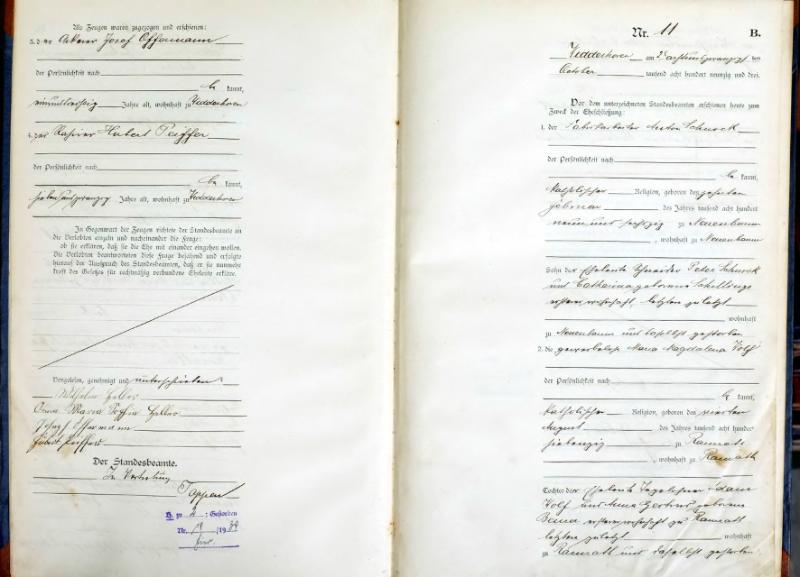 Als Zeugen waren zugezogen und erschienen:
3. der Ackerer Josef Offermann
der Persönlichkeit nach
be kannt,
neununddreißig Jahre alt, wohnhaft zu Hedderhoven
4. der Hubert Peiffer
der Persönlichkeit nach
be kannt,
siebenundzwanzig Jahre alt, wohnhaft zu Hedderhoven
In Gegenwart der Zeugen richtete der Standesbeamte an
die Verlobten einzeln und nacheinander die Frage:
ob sie erklären, daß sie die Ehe mit einander eingehen wollen.
Die Verlobten beantworteten diese Frage bejahend und erfolgte
hierauf der Ausspruch des Standesbeamten, daß er sie nunmehr
kraft des Gesetzes für rechtmäßig verbundene Eheleute erkläre.
Vorgelesen, genehmigt und unterschrieben
Wilhelm
Maria Sophia
Joseph Offermann
Hubert Peiffer
Der Standesbeamte.
In Vertretung
Pappen
H. zu 2 : Gestorben
Nr. 19
Nr. 11 B.
Hedderhoven am
October tausend acht hundert neunzig und drei.
Vor dem unterzeichneten Standesbeamten erschienen heute zum
Zweck der Eheschließung:
1. der Fabrikarbeiter Anton Schnock
der Persönlichkeit nach
be kannt,
katholischer Religion, geboren den zehnten
Februar des Jahres tausend acht hundert
neun und sechzig zu Neuenbaum
, wohnhaft zu Neuenbaum
Sohn der Eheleute Schneider Peter Schnock
und Catharina geborene Schillings
letzten zuletzt
wohnhaft
zu Neuenbaum und daselbst gestorben
2. die gewerbelose Maria Magdalena Wolf
der Persönlichkeit nach
be kannt,
katholischer Religion, geboren den vierten
August des Jahres tausend acht hundert
siebenzig zu Ramrath
, wohnhaft zu Ramrath
Tochter der Eheleute Tagelöhner Adam
Wolf und Anna Gertrud geborene
zu Ramrath
letzten zuletzt wohnhaft
zu Ramrath und daselbst gestorben